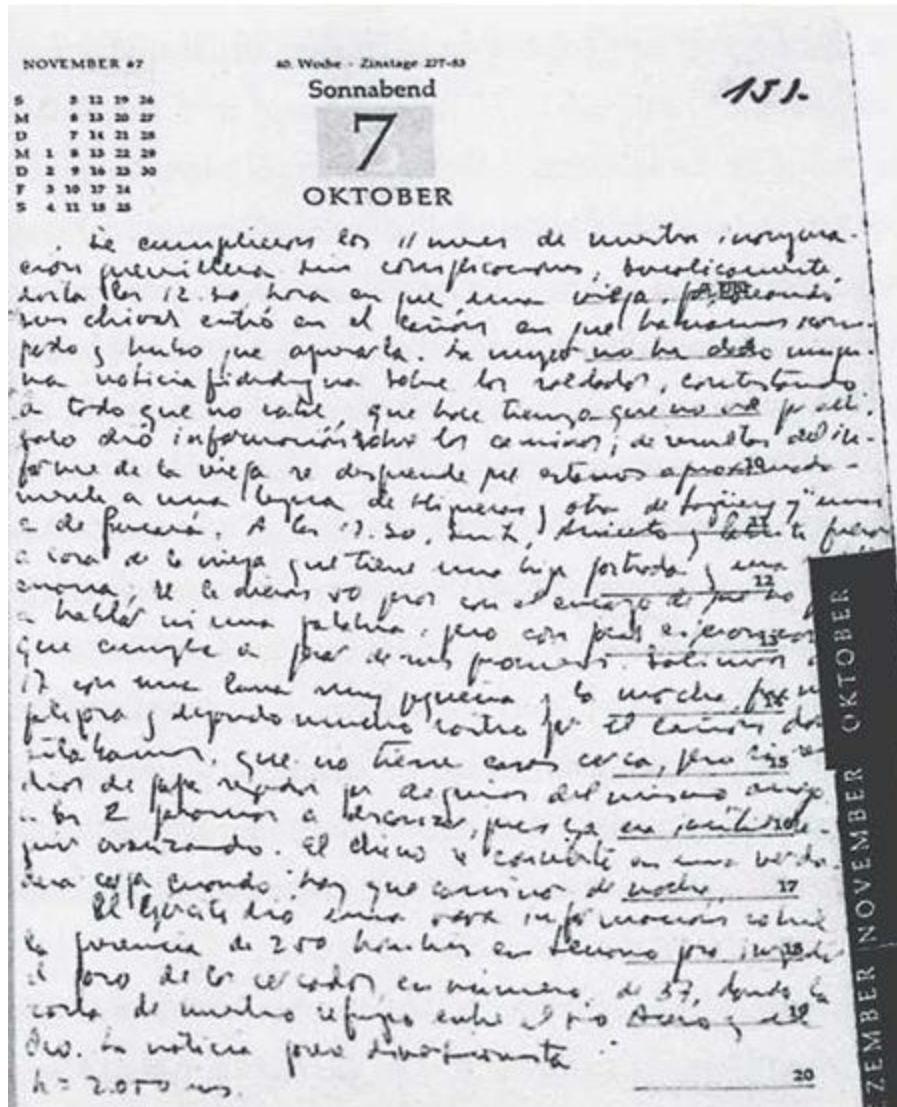 NOVEMBER 67
S 5 12 19 26
M 6 13 20 27
D 7 14 21 28
M 1 8 15 22 29
D 2 9 16 23 30
F 3 10 17 24
S 4 11 18 25
40. Woche - Zinstage 277-83
Sonnabend
7
OKTOBER
151.
Se cumplieron los 11 meses de nuestra inaugura-
ción guerrillera sin complicaciones, bucolicamente
hasta las 12.30, hora en que una vieja, pastoreando
sus chivas entró en el cañón en que habiamos acam-
pado y hubo que apresarla. La mujer no ha dado ningu-
na noticia fidedigna sobre los soldados, contestando
a todo que no sabe, que hace tiempo que no va por alli
solo dió información sobre los caminos; de resultas del in-
forme de la vieja se desprende que estamos aproximada-
mente a una legua de Higueras y otra de Jagüey y unas
2 de Pucará. A las 17.30, Inti, Aniceto y Pablito fueron
a casa de la vieja que tiene una hija postrada y una
enana; se le dieron 50 pesos con el encargo de que no
a hablar ni una palabra, pero con pocas esperanzas
que cumpla a pesar de sus promesas. Salimos
17 con una luna muy pequeña y la marcha fue
fatigosa y dejando mucho rastro por el cañón don
estabamos, que no tiene casas cerca, pero si
dios de papa regados por acequias del mismo arroyo
a las 2 paramos a descansar, pues ya era inutil se-
guir avanzando. El chino se convierte en una verda-
dera carga cuando hay que caminar de noche.
El Ejército dió una rara información sobre
la presencia de 250 hombres en Serrano para impedir
el paso de los cercados en numero de 37, dando la
zona de nuestro refugio entre el rio Acero y el
Oro. La noticia parece diversionista
h = 2.000 ms.
10
11
12
13
14
15
16
17
18
19
20
OKTOBER
NOVEMBER
EZEMBER